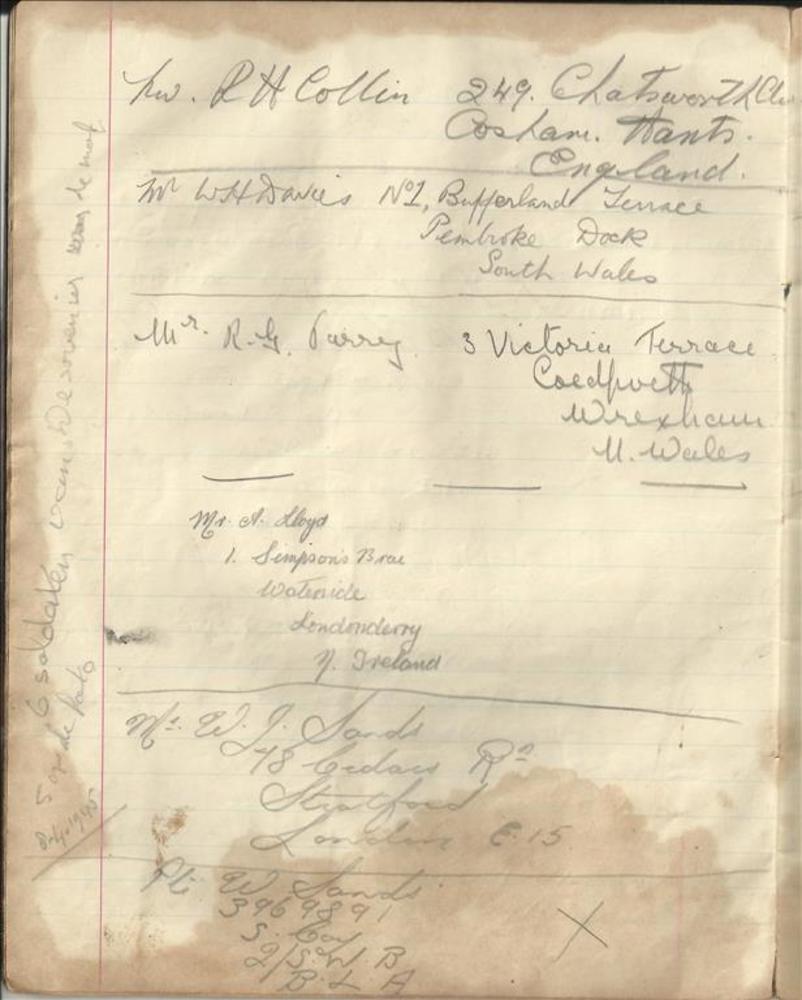 Mr. R H Collin 249. Chatsworth
Cosham. Hants.
England.
Mr W H Davies No 1, Bufferland Terrace
Pembroke Dock
South Wales
Mr. R. G. Parry 3 Victoria Terrace
Coedpoeth
Wrexham
N. Wales
Mr. A. Lloyd
1. Simpson's Brae
Waterside
Londonderry
N. Ireland
Mr. W. J. Sands
78 Cedars Rd
Stratford
London E.15
Pte W Sands
3969891
S. Coy
2/S.W.B
B.L.A
6 soldaten
5 op de foto
8-4-1945